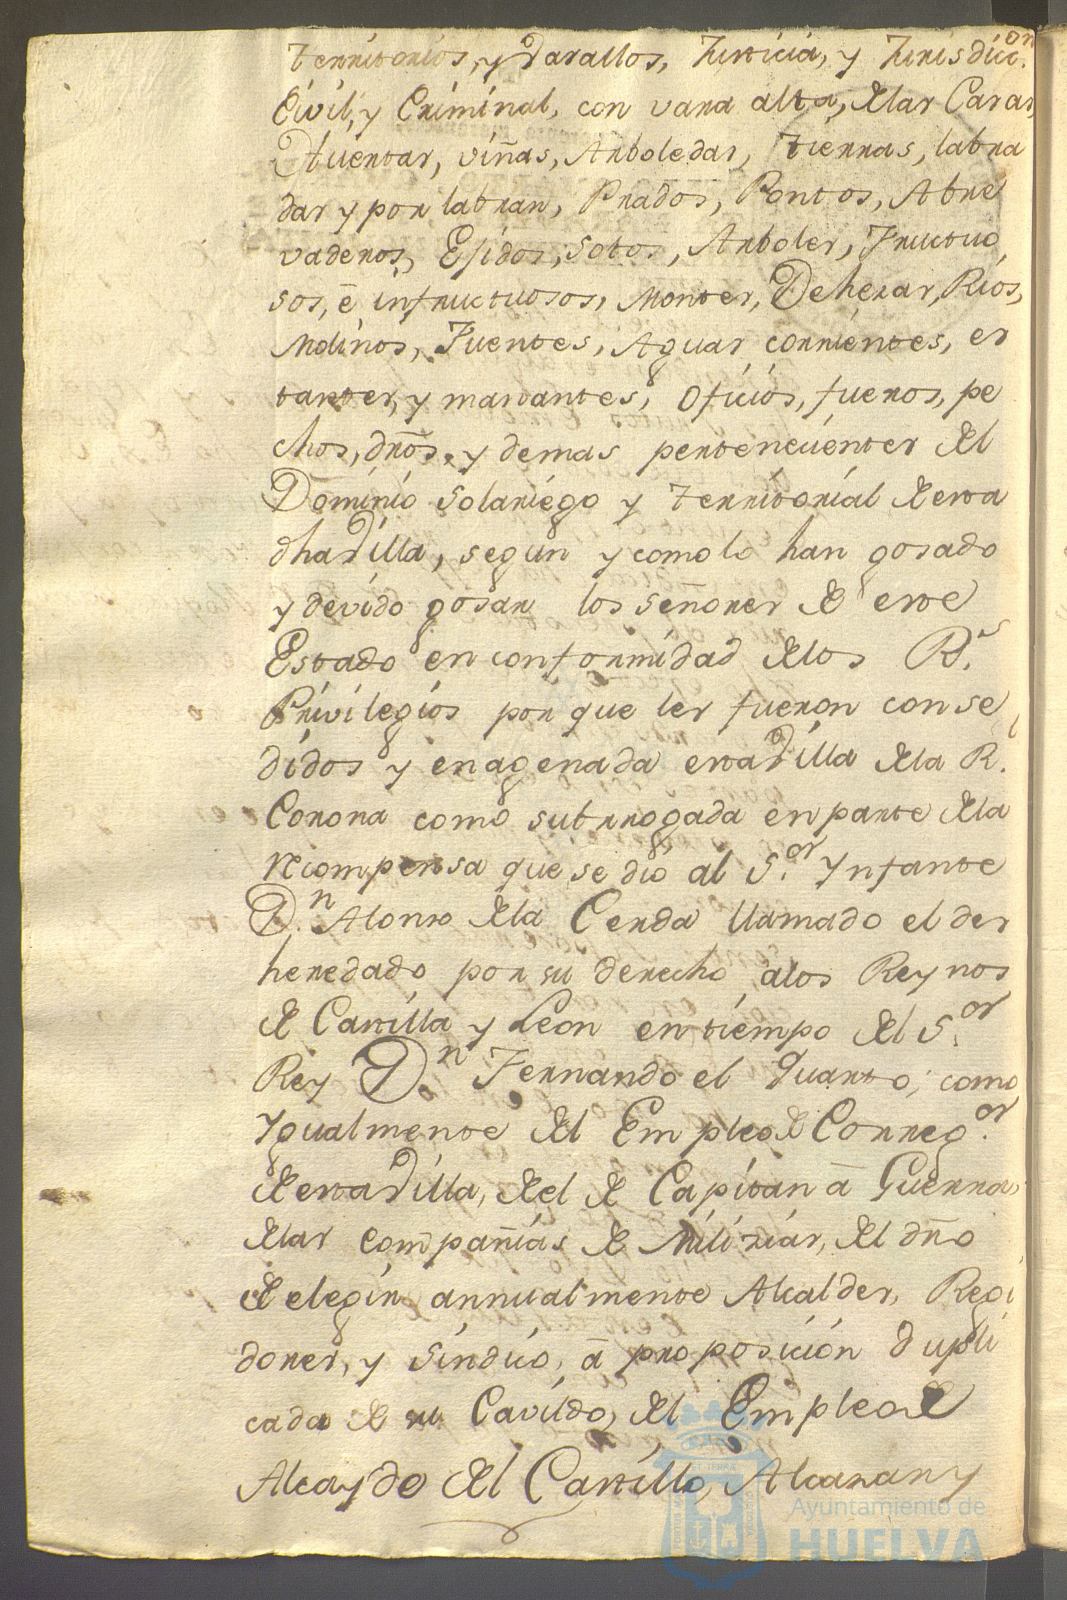 Territorios, y Vasallos, Justicia, y Jurisdicc.on
Civil, y Criminal, con vara alta, delas Casas,
Huertas, viñas, Arboledas, tierras, labra
das y por labrar, Prados, Pontos, Abre
vaderos, Esidos, sotos, Arboles, Fructuo
sos, é infructuosos, Montes, Dehezas, Rios,
Molinos, Fuentes, Aguas corrientes, es
tantes, y manantes, Oficios, fueros, pe
chos, dros, y demas pertenecientes del
Dominio Solariego y territorial de esta
dha Villa, segun y como lo han gosado
y devido gosar los señores de este
Estado en conformidad delos R.s
Privilegios por que les fueron conse
didos y enagenada esta Villa dela R.l
Corona como subrrogada en parte dela
recompensa que se dió al S.or Ynfante
D.n Alonso dela Cerda llamado el des
heredado por su derecho alos Reynos
de Castilla y Leon en tiempo del S.or
Rey D.n Fernando el Quarto; como
Ygualmente del Empleo de Correg.or
de esta Villa, del de Capitan á Guerra,
delas Compañias de Milizias, del dro
de elegir annualmente Alcaldes, Regi
dores, y Sindico, á proposición dupli
cada de su Cavildo, del Empleo de
Alcayde del Castillo, Alcazar y
Ayuntamiento de
HUELVA